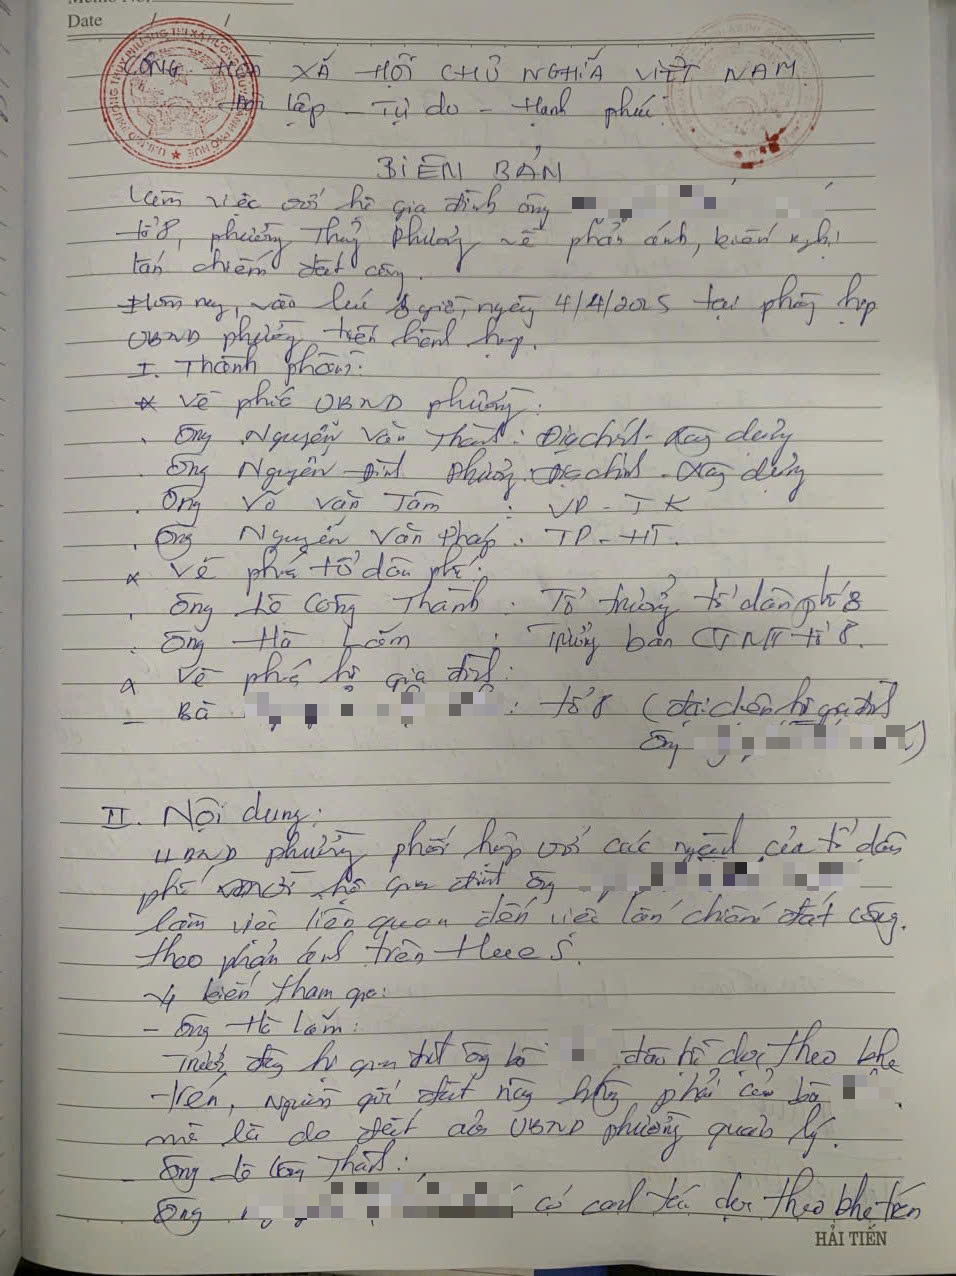 Date / /
CỘNG HÒA XÃ HỘI CHỦ NGHĨA VIỆT NAM
Độc lập - Tự do - Hạnh phúc
BIÊN BẢN
Làm việc với hộ gia đình ông
tổ 8, phường Thủy Phương về phản ánh, kiến nghị
lấn chiếm đất công.
Hôm nay, vào lúc giờ, ngày 4/4/2025 tại phòng họp
UBND phường tiến hành họp.
I. Thành phần:
* Về phía UBND phường:
. Ông Nguyễn Văn Thành: Địa chính - Xây dựng
. Ông Nguyễn Đình Phương: Địa chính - Xây dựng
. Ông Võ Văn Tâm : VP - TK
. Ông Nguyễn Văn Pháp: TP - HT.
* Về phía tổ dân phố:
. Ông Lê Công Thành : Tổ trưởng tổ dân phố 8
. Ông Hà Lắm : Trưởng ban CTMT tổ 8.
* Về phía hộ gia đình:
- Bà : tổ 8 (đại diện hộ gia đình
ông )
II. Nội dung:
UBND phường phối hợp với các ngành của tổ dân
phố hộ gia đình ông
làm việc liên quan đến việc lấn chiếm đất công.
theo phản ánh trên Hue S.
Ý kiến tham gia:
- Ông Hà Lắm:
Trước đây hộ gia đình ông bà đào hồ dọc theo khe
trên, nguồn gốc đất này không phải của bà
mà là do đất của UBND phường quản lý.
- Ông Lê Công Thành:
Ông có canh tác dọc theo khe trên
HẢI TIẾN